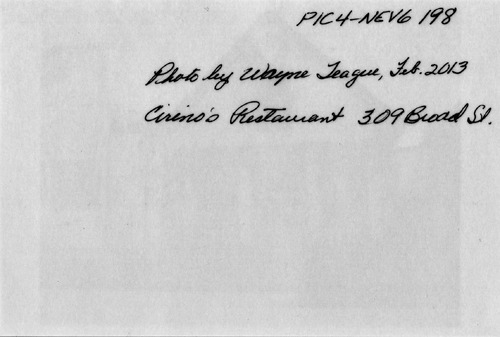 PIC4-NEV6 198
Photo by Wayne Teague, Feb. 2013
Cirino's Restaurant 309 Broad St.